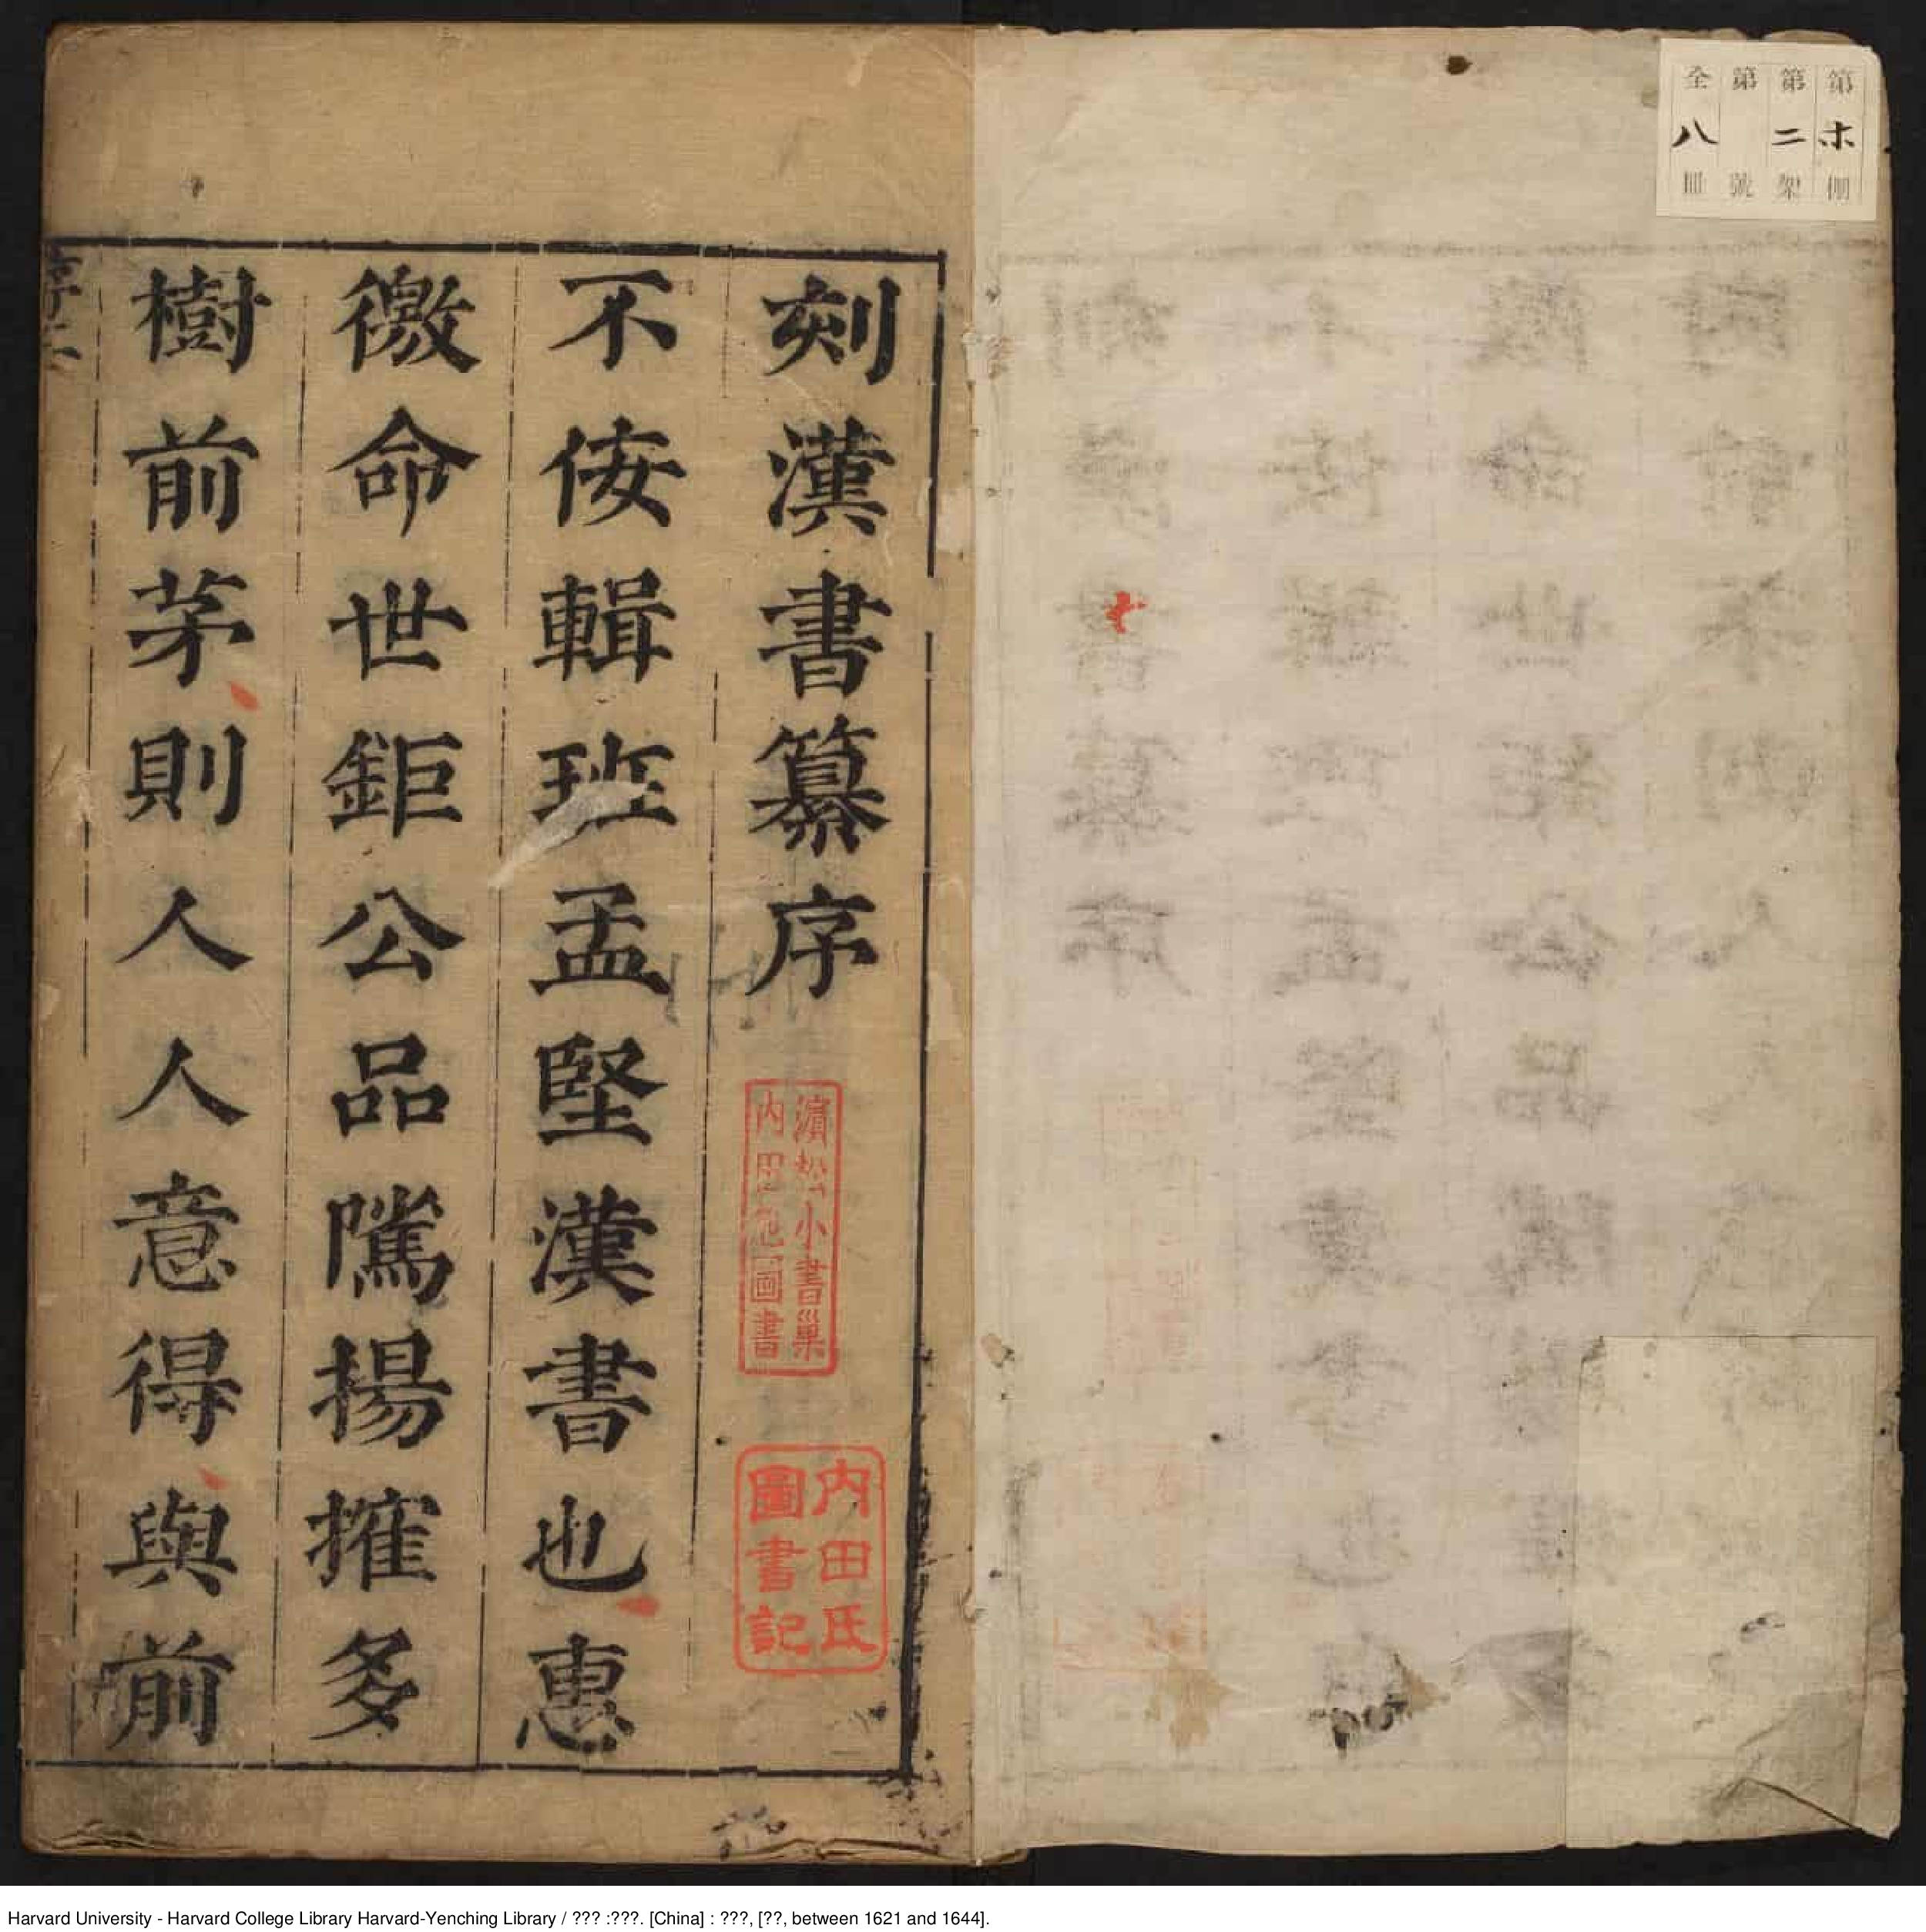 第ホ棚
第二架
第號
全八冊
刻漢書纂序
不佞輯班孟堅漢書也惠
徼命世鉅公品隲揚搉多
樹前茅則人人意得與前
濵松小書巢
内田氏圖書記
Harvard University - Harvard College Library Harvard-Yenching Library / ??? :???. [China] : ???, [??, between 1621 and 1644].